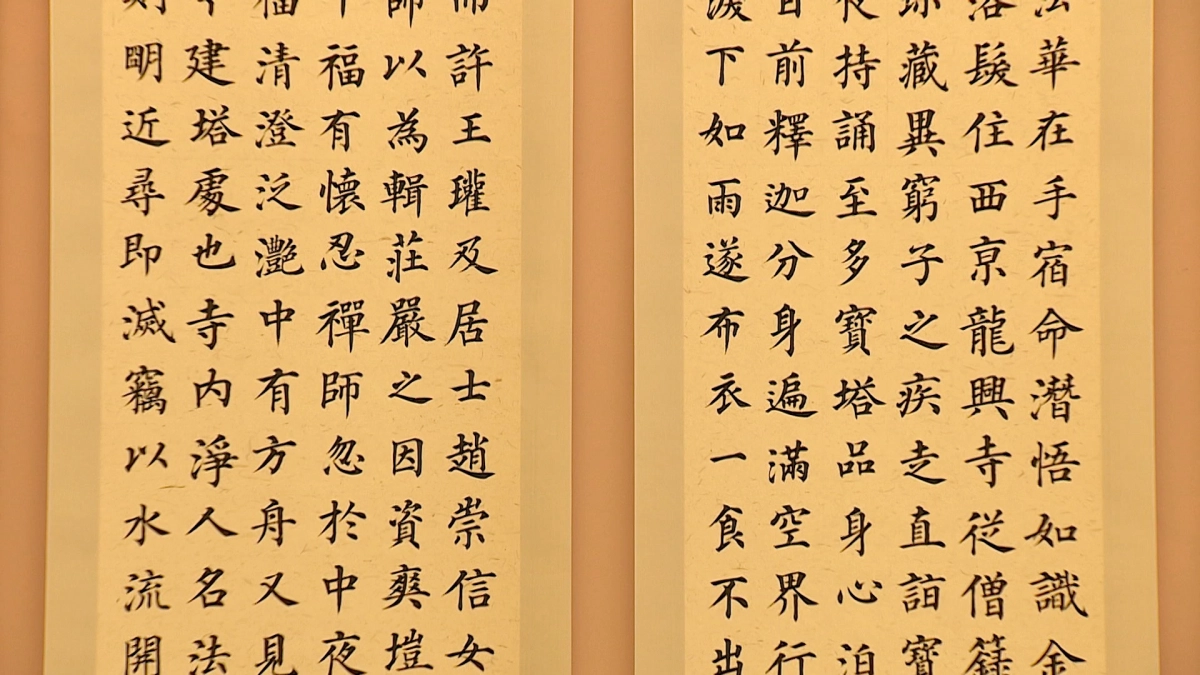 法華在手宿命潛悟如識金
落髮住西亰龍興寺從僧籙
珠藏異窮子之疾走直詣寶
夜持誦至多寶塔品身心泊
目前釋迦分身遍滿空界行
淚下如雨遂布衣一食不出
而許王瓘及居士趙崇信女
師以為輯莊嚴之因資爽塏
千福有懷忍禪師忽於中夜
福清澄泛灩中有方舟又見
今建塔處也寺内淨人名法
則眀近尋即滅竊以水流開